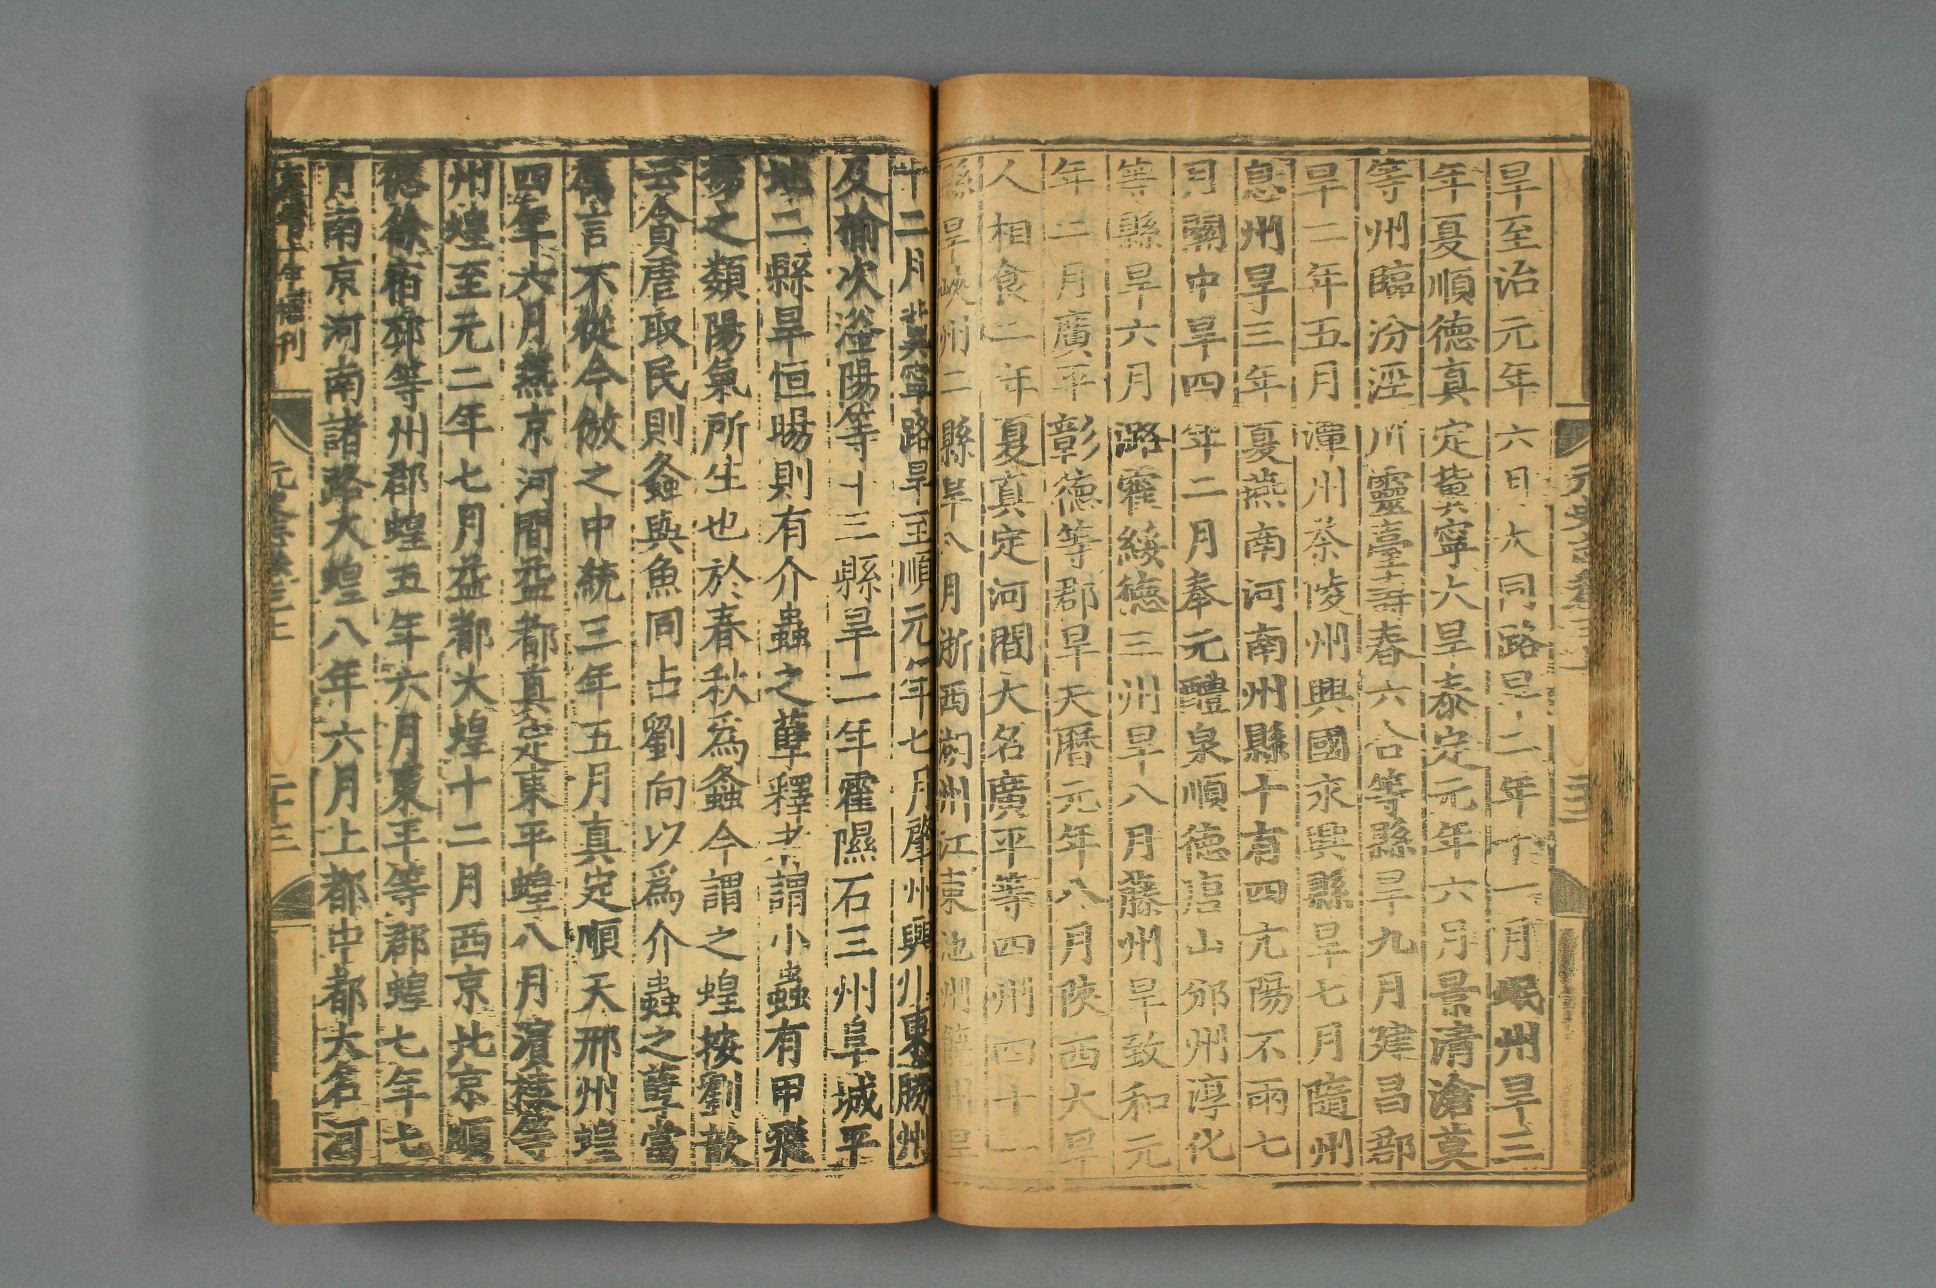 旱至治元年六月大同路旱二年十一月岷州旱三
年夏順德真定冀寧大旱泰定元年六月景清滄莫
等州臨汾涇川靈臺壽春六合等縣旱九月建昌郡
旱二年五月潭州茶陵州興國永興縣旱七月隨州
息州旱三年夏燕南河南州縣十有四亢陽不雨七
月關中旱四年二月奉元醴泉順德唐山邠州淳化
等縣旱六月潞霍綏德三州旱八月藤州旱致和元
年二月廣平彰德等郡旱天曆元年八月陝西大旱
人相食二年夏真定河間大名廣平等四州四十一
縣旱峽州二縣旱八月浙西湖州江東池州饒州旱
十二月冀寧路旱至順元年七月肇州興州東勝州
及榆次滏陽等十三縣旱二年霍隰石三州阜城平
地二縣旱恒暘則有介蟲之孽釋者謂小蟲有甲飛
揚之類陽氣所生也於春秋爲螽今謂之蝗按劉歆
云貪虐取民則螽與魚同占劉向以爲介蟲之孽當
屬言不從今倣之中統三年五月真定順天邢州蝗
四年六月燕京河間益都真定東平蝗八月濱棣等
州蝗至元二年七月益都大蝗十二月西京北京順
德徐宿邳等州郡蝗五年六月東平等郡蝗七年七
月南京河南諸路大蝗八年六月上都中都大名河
元史志卷三上
二十三